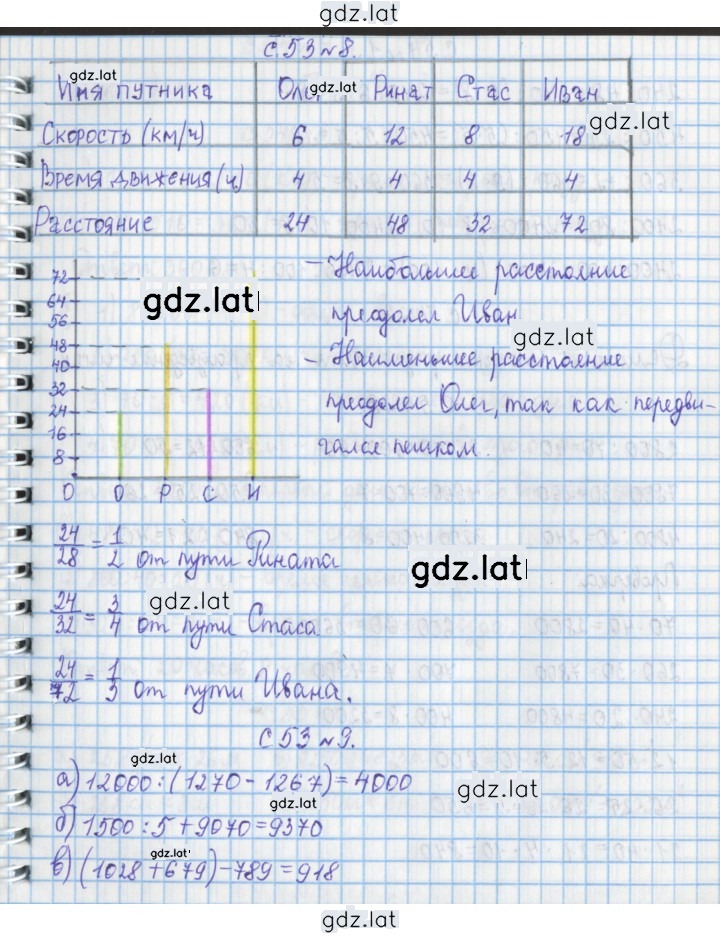 gdz.lat
С 53 №8.
gdz.lat
Имя путника Олег Ринат Стас Иван
gdz.lat
gdz.lat
Скорость (км/ч) 6 12 8 18
Время движения (ч) 4 4 4 4
Расстояние 24 48 32 72
72
64
56
48
40
32
24
16
8
0 О Р С И
gdz.lat
– Наибольшее расстояние
преодолел Иван
gdz.lat
– Наименьшее расстояние
преодолел Олег, так как передви-
гался пешком.
24/28 = 1/2 от пути Рината
gdz.lat
gdz.lat
24/32 = 3/4 от пути Стаса
24/72 = 1/3 от пути Ивана.
С 53 №9.
gdz.lat
а) 12000 : (1270 – 1267) = 4000
gdz.lat
gdz.lat
б) 1500 : 5 + 9070 = 9370
gdz.lat
в) (1028 + 679) – 789 = 918
gdz.lat